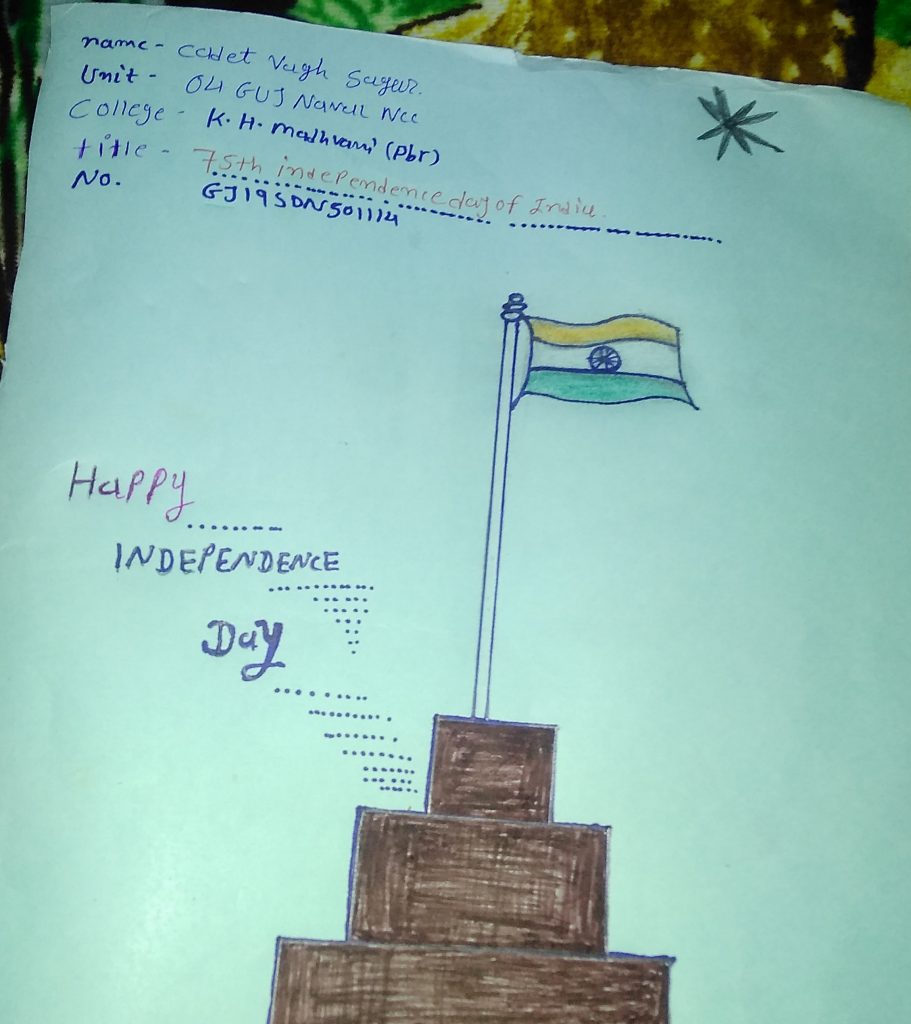 name - Cadet Vagh Sagar.
Unit - 04 GUJ Naval Ncc
College - K. H. madhvani (Pbr)
title - 75th independence day of India.
No. GJ19SDN501114
Happy
INDEPENDENCE
Day